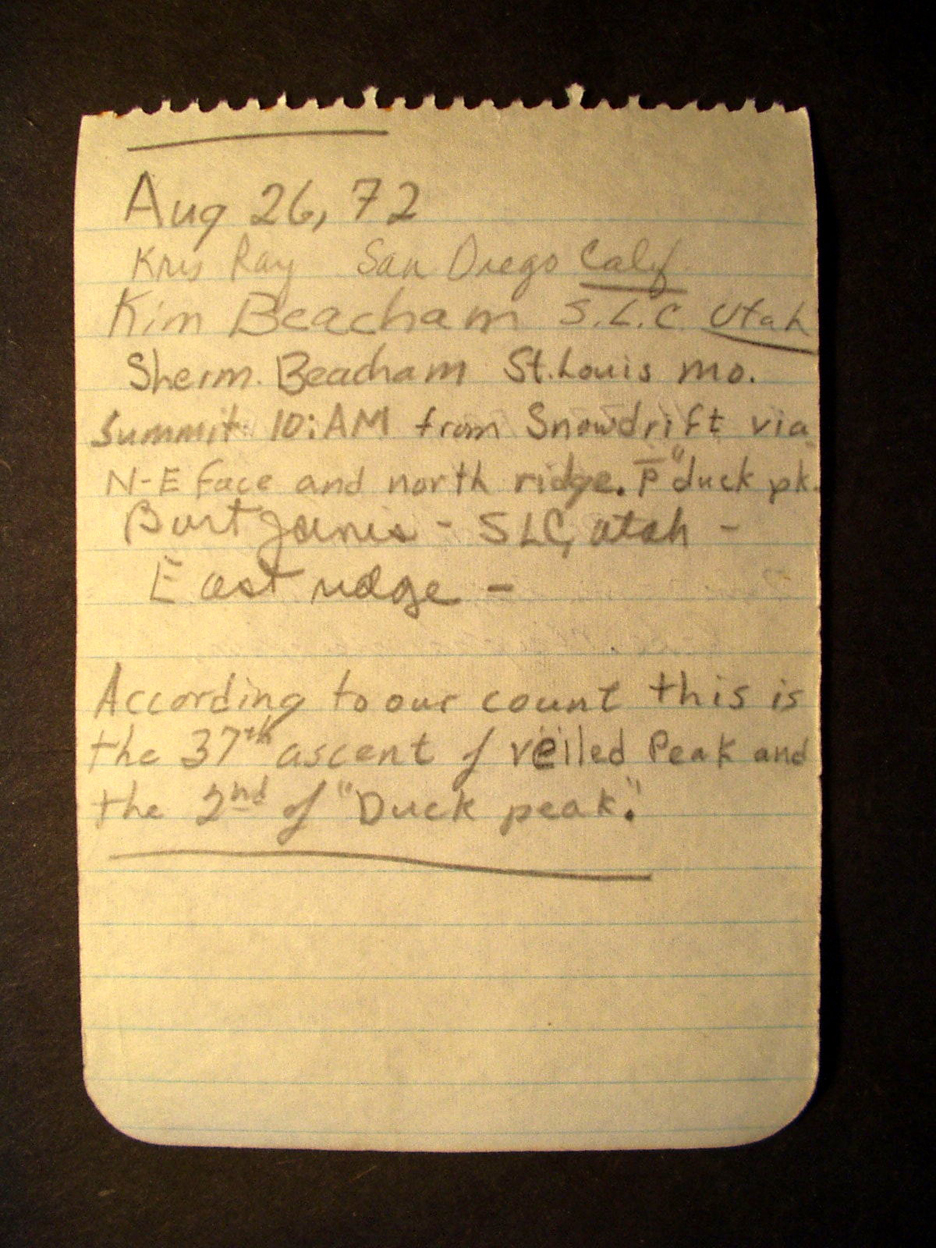 Aug 26, 72
Kris Ray San Diego Calif.
Kim Beacham S.L.C. Utah
Sherm. Beacham St. Louis Mo.
Summit 10:AM from Snowdrift via
N-E Face and north ridge. P "duck pk.
Burt Janis - SLC, Utah -
East ridge -
According to our count this is
the 37th ascent of Veiled Peak and
the 2nd of "Duck peak".